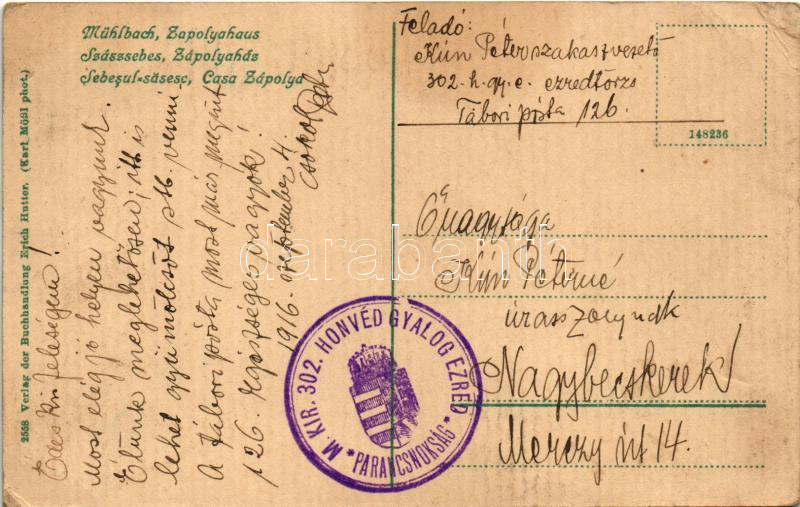 Mühlbach, Zapolyahaus
Szászsebes, Zápolyaház
Sebeşul-săsesc, Casa Zápolya
2558 Verlag der Buchhandlung Erich Hutter. (Karl Mösl phot.)
Édes kis feleségem!
Most elég jó helyen vagyunk.
Élünk meglehetősen, itt is
lehet gyümölcsöt stb. venni.
A tábori pósta most már megint
126. Egészséges vagyok!
1916. szeptember 4.
Csókol Peti
Feladó:
Kún Péter szakaszvezető
302. h. gy. e. ezredtörzs
Tábori pósta 126.
148236
Őnagysága
Kún Péterné
úrasszonynak
Nagybecskerek
Merczy út 14.
M. KIR. 302. HONVÉD GYALOG EZRED
* PARANCSNOKSÁG *
darabanth